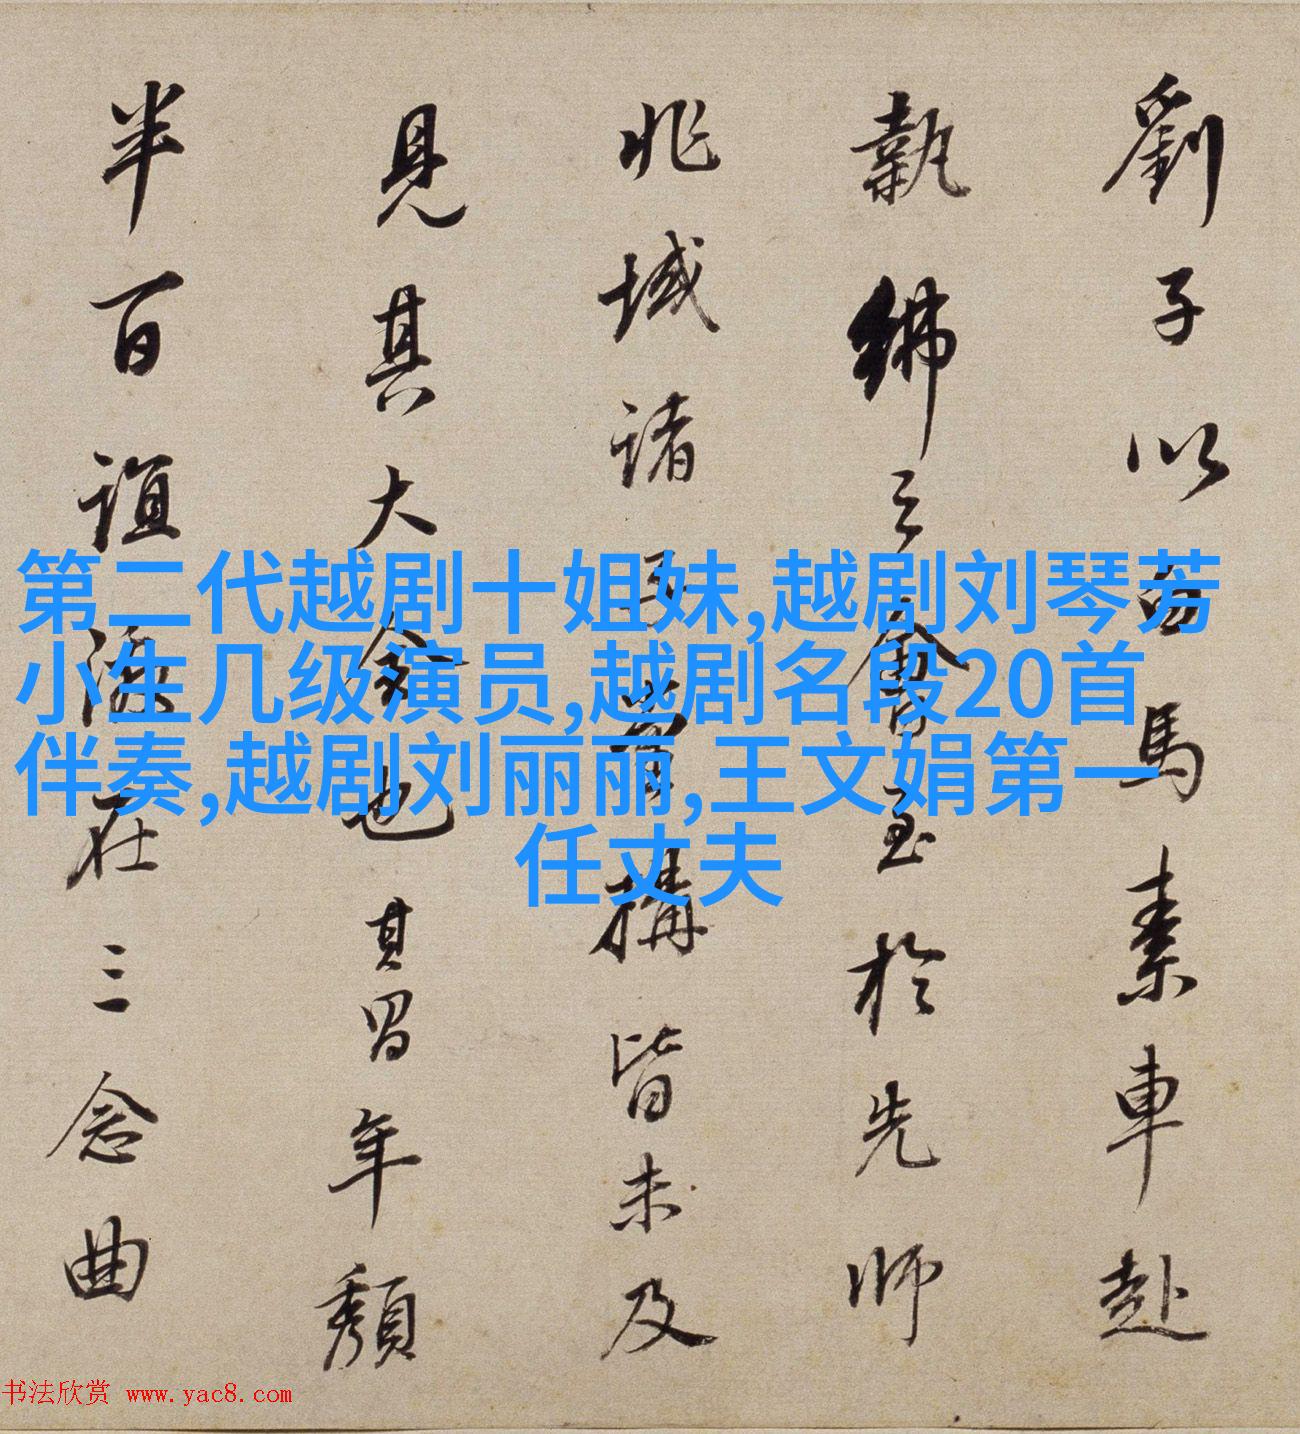 劉子以白馬素車赴
執紼之會至於先師
兆域諸構皆未及
見其大也其年
半百誼在三念曲
第二代越剧十姐妹,越剧刘琴芳
小生几级演员,越剧名段20首
伴奏,越剧刘丽丽,王文娟第一
任丈夫
书法欣赏 www.yac8.com